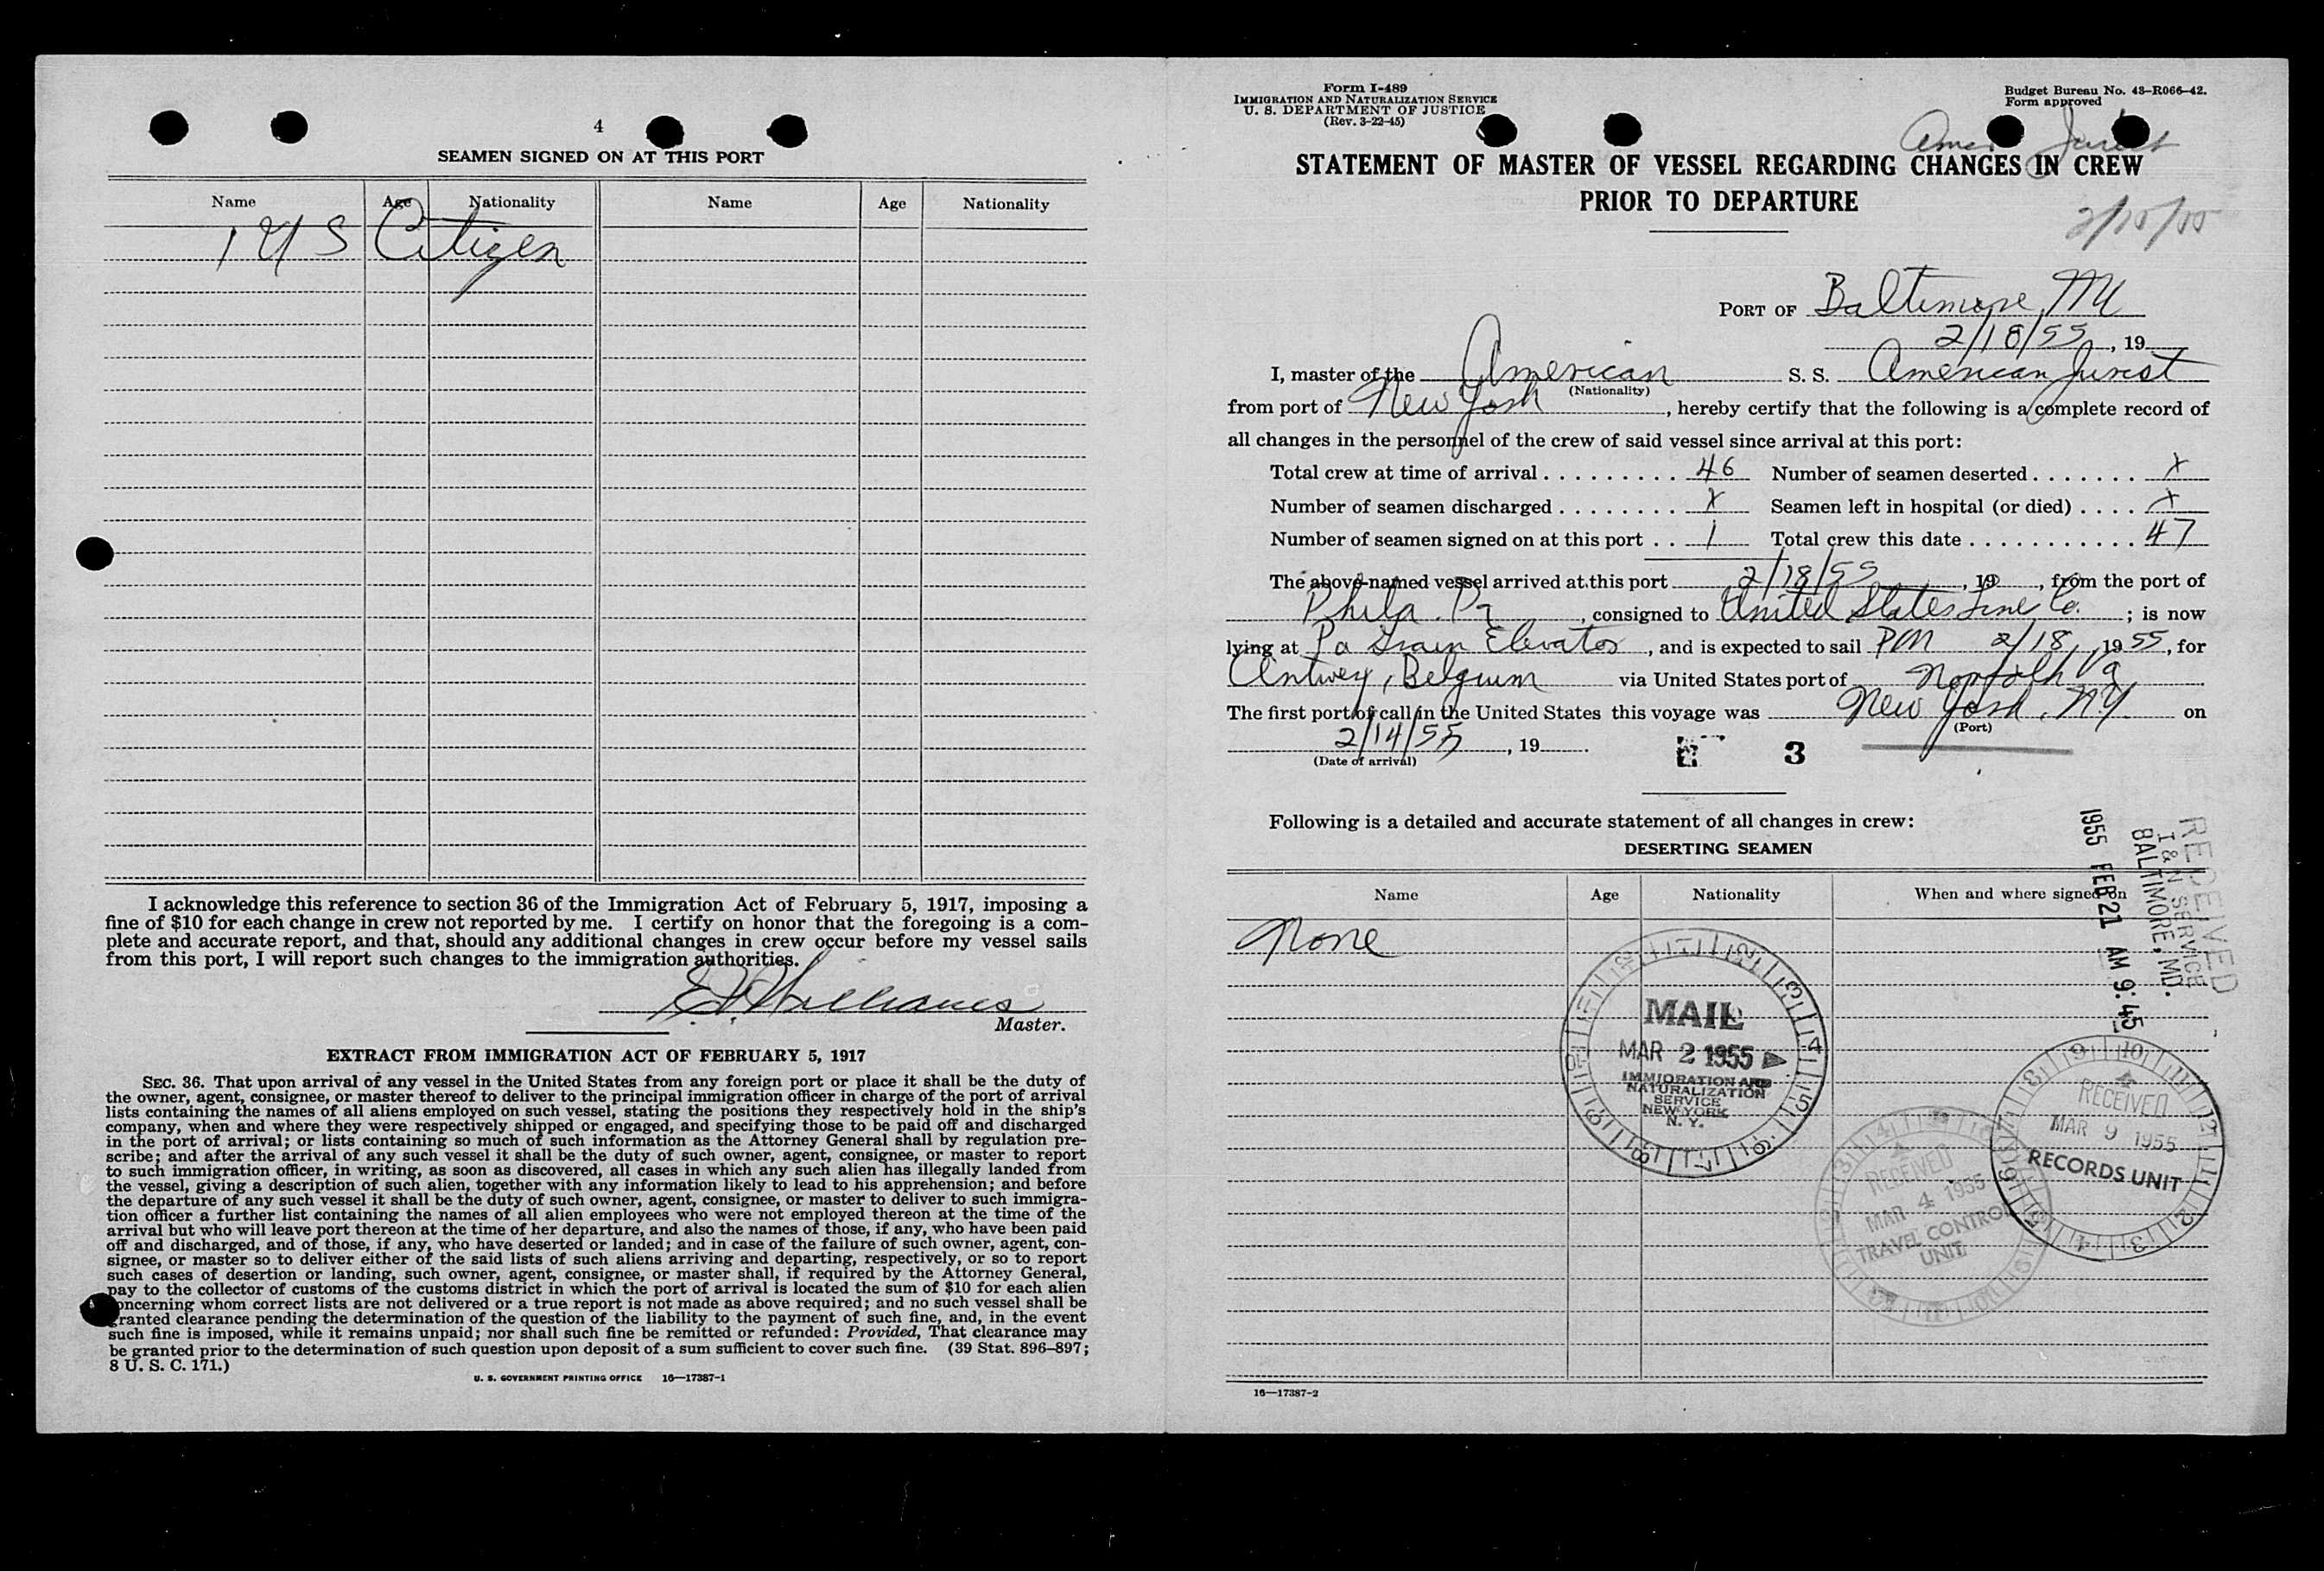 4
SEAMEN SIGNED ON AT THIS PORT
Name Age Nationality Name Age Nationality
1 US Citizen
I acknowledge this reference to section 36 of the Immigration Act of February 5, 1917, imposing a
fine of $10 for each change in crew not reported by me. I certify on honor that the foregoing is a com-
plete and accurate report, and that, should any additional changes in crew occur before my vessel sails
from this port, I will report such changes to the immigration authorities.
Williams
Master.
EXTRACT FROM IMMIGRATION ACT OF FEBRUARY 5, 1917
SEC. 36. That upon arrival of any vessel in the United States from any foreign port or place it shall be the duty of
the owner, agent, consignee, or master thereof to deliver to the principal immigration officer in charge of the port of arrival
lists containing the names of all aliens employed on such vessel, stating the positions they respectively hold in the ship's
company, when and where they were respectively shipped or engaged, and specifying those to be paid off and discharged
in the port of arrival; or lists containing so much of such information as the Attorney General shall by regulation pre-
scribe; and after the arrival of any such vessel it shall be the duty of such owner, agent, consignee, or master to report
to such immigration officer, in writing, as soon as discovered, all cases in which any such alien has illegally landed from
the vessel, giving a description of such alien, together with any information likely to lead to his apprehension; and before
the departure of any such vessel it shall be the duty of such owner, agent, consignee, or master to deliver to such immigra-
tion officer a further list containing the names of all alien employees who were not employed thereon at the time of the
arrival but who will leave port thereon at the time of her departure, and also the names of those, if any, who have been paid
off and discharged, and of those, if any, who have deserted or landed; and in case of the failure of such owner, agent, con-
signee, or master so to deliver either of the said lists of such aliens arriving and departing, respectively, or so to report
such cases of desertion or landing, such owner, agent, consignee, or master shall, if required by the Attorney General,
pay to the collector of customs of the customs district in which the port of arrival is located the sum of $10 for each alien
concerning whom correct lists are not delivered or a true report is not made as above required; and no such vessel shall be
granted clearance pending the determination of the question of the liability to the payment of such fine, and, in the event
such fine is imposed, while it remains unpaid; nor shall such fine be remitted or refunded: Provided, That clearance may
be granted prior to the determination of such question upon deposit of a sum sufficient to cover such fine. (39 Stat. 896–897;
8 U. S. C. 171.)
U. S. GOVERNMENT PRINTING OFFICE 16—17387-1
Form I-489
IMMIGRATION AND NATURALIZATION SERVICE
U. S. DEPARTMENT OF JUSTICE
(Rev. 3-22-45)
Budget Bureau No. 43–R066–42.
Form approved
Jurist
STATEMENT OF MASTER OF VESSEL REGARDING CHANGES IN CREW
PRIOR TO DEPARTURE
PORT OF Baltimore, Md
2/18/55, 19
I, master of the American S. S. American Jurist
(Nationality)
from port of New York, hereby certify that the following is a complete record of
all changes in the personnel of the crew of said vessel since arrival at this port:
Total crew at time of arrival 46 Number of seamen deserted X
Number of seamen discharged X Seamen left in hospital (or died) X
Number of seamen signed on at this port 1 Total crew this date 47
The above-named vessel arrived at this port 2/18/55, 19 , from the port of
Phila. Pa, consigned to United States Line Co. ; is now
lying at Pa Grain Elevator, and is expected to sail PM 2/18, 1955, for
Antwep, Belgium via United States port of Norfolk Va
The first port of call in the United States this voyage was New York, N.Y. on
(Port)
2/14/55, 19 .
(Date of arrival)
3
Following is a detailed and accurate statement of all changes in crew:
DESERTING SEAMEN
Name Age Nationality When and where signed on
None
RECEIVED
I & N SERVICE
BALTIMORE, MD.
1955 FEB 21 AM 9:45
MAIL
MAR 2 1955
IMMIGRATION AND
NATURALIZATION
SERVICE
NEW YORK
N. Y.
RECEIVED
MAR 4 1955
TRAVEL CONTROL
UNIT
RECEIVED
MAR 9 1955
RECORDS UNIT
16—17387-2